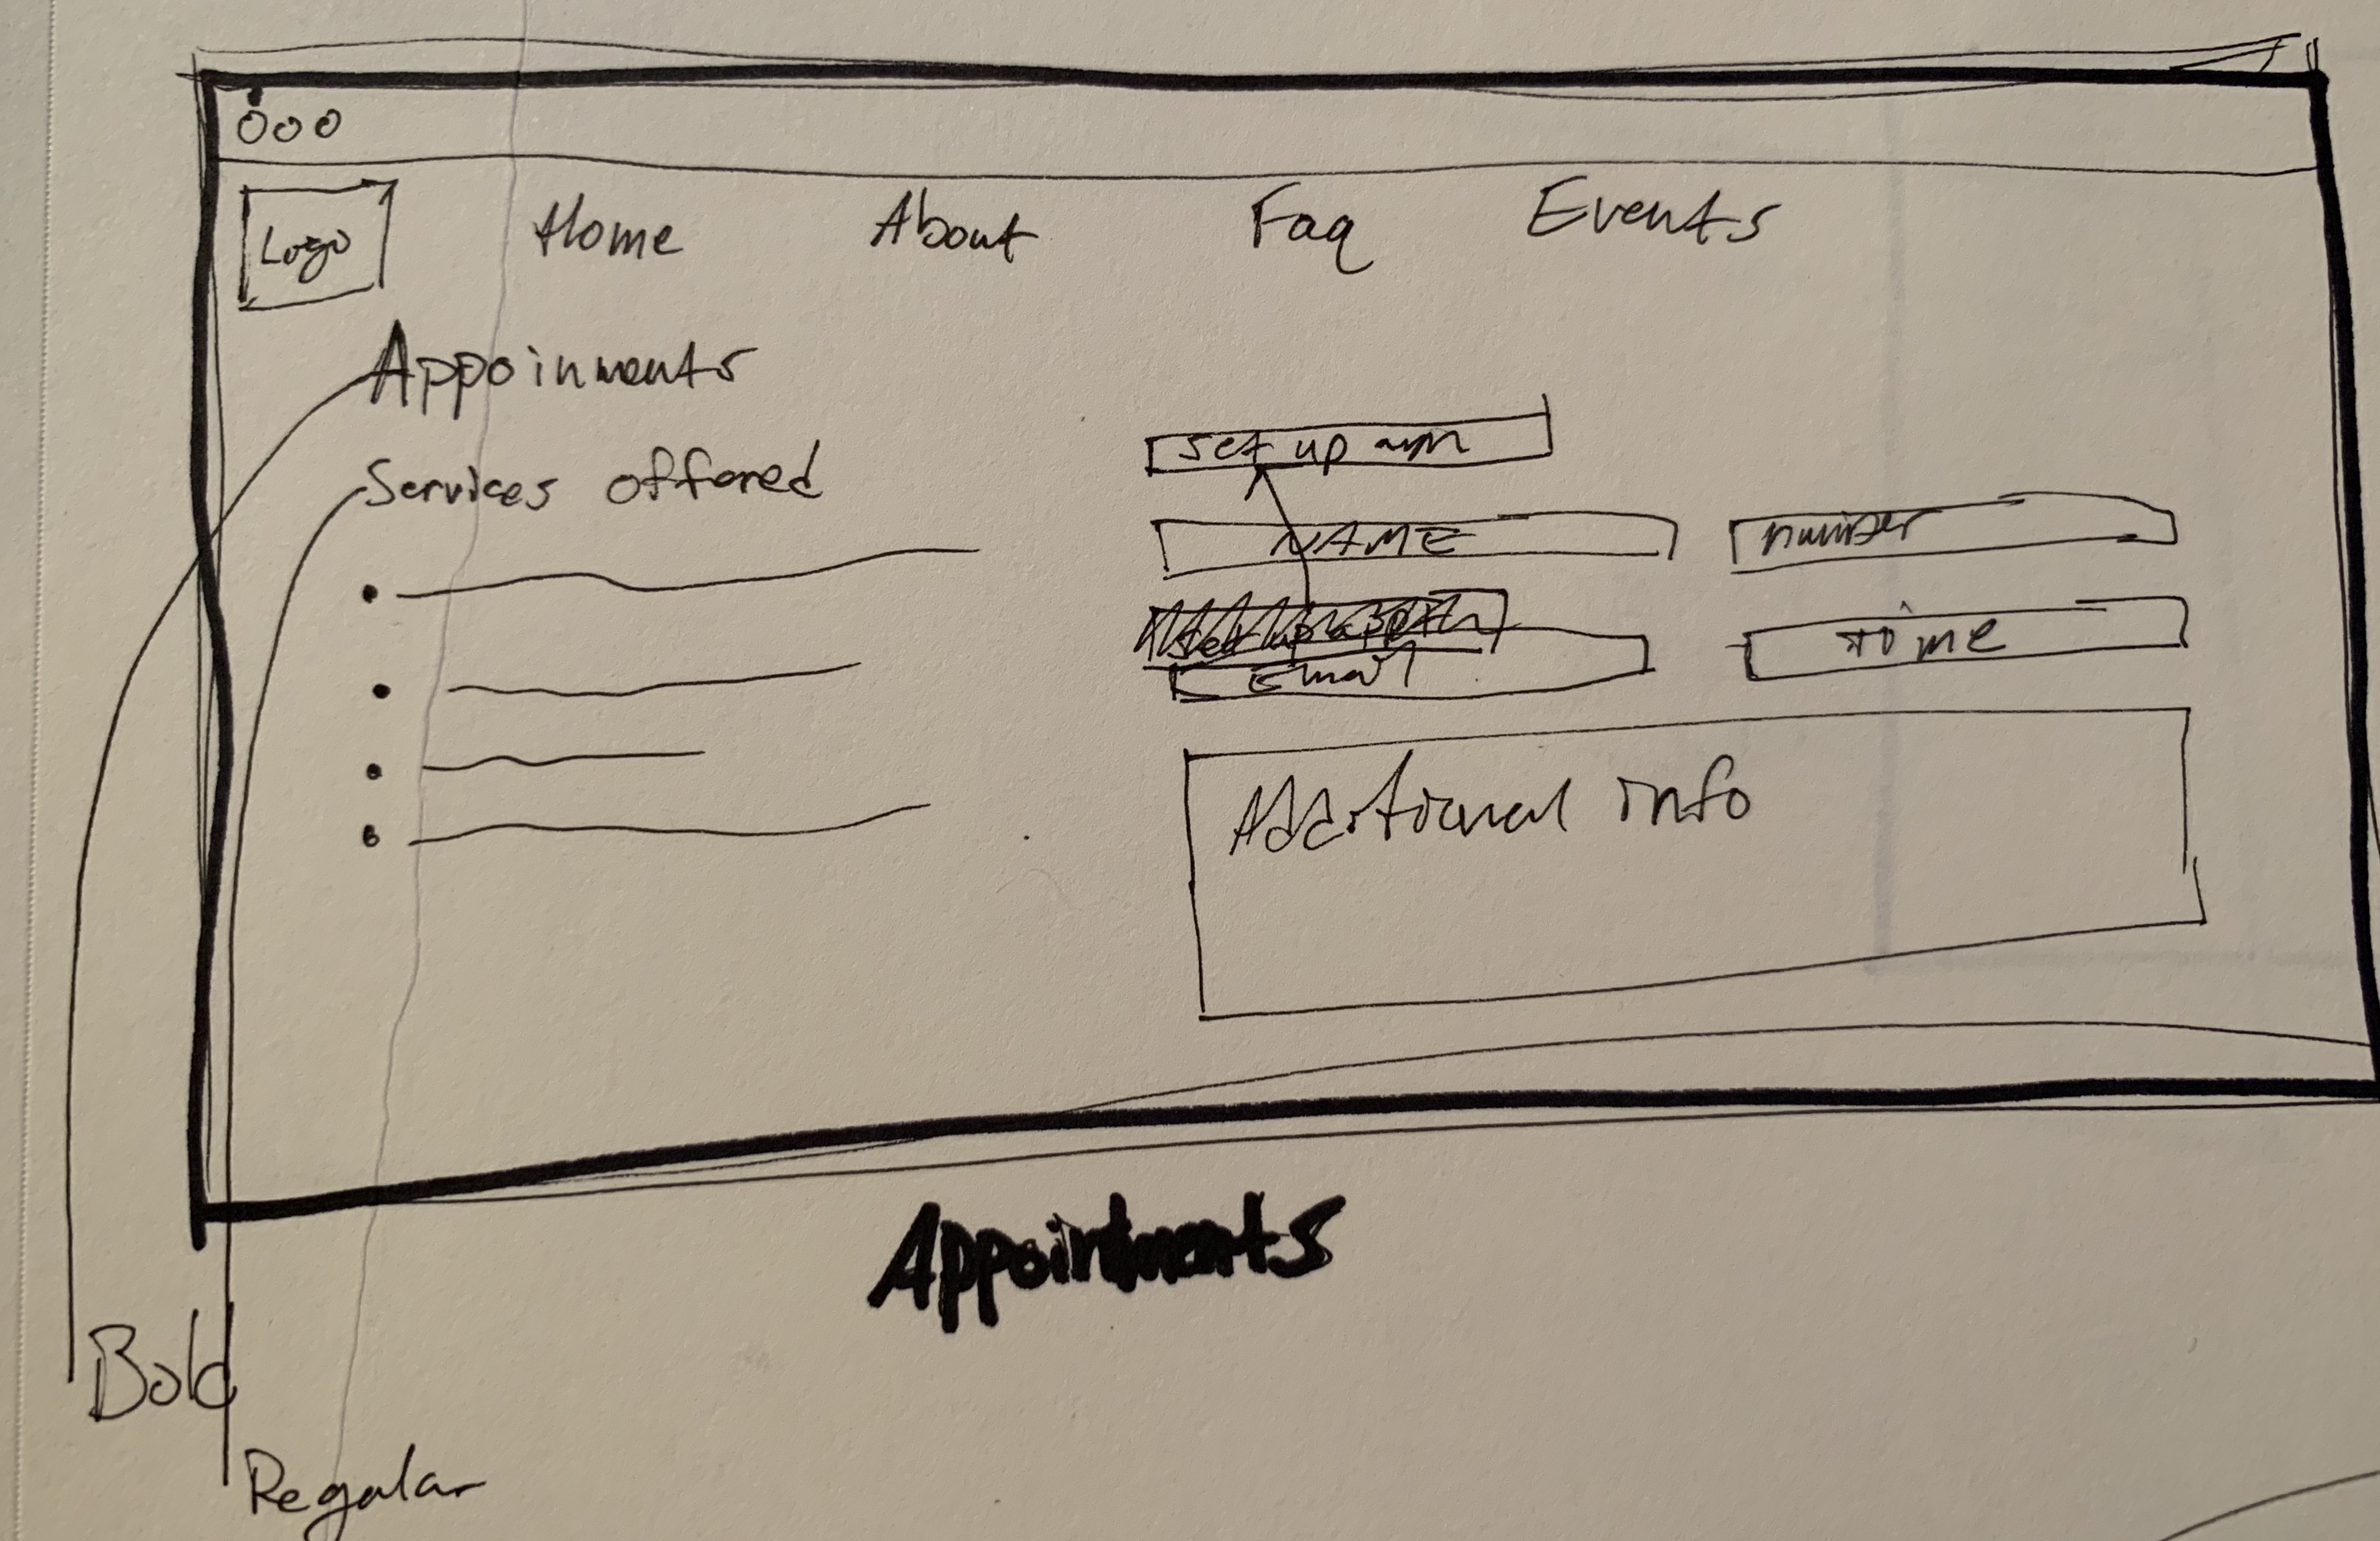 Logo Home About Faq Events
Appoinments
set up
Services offered
NAME number
Email time
Additional info
Appointments
Bold
Regular